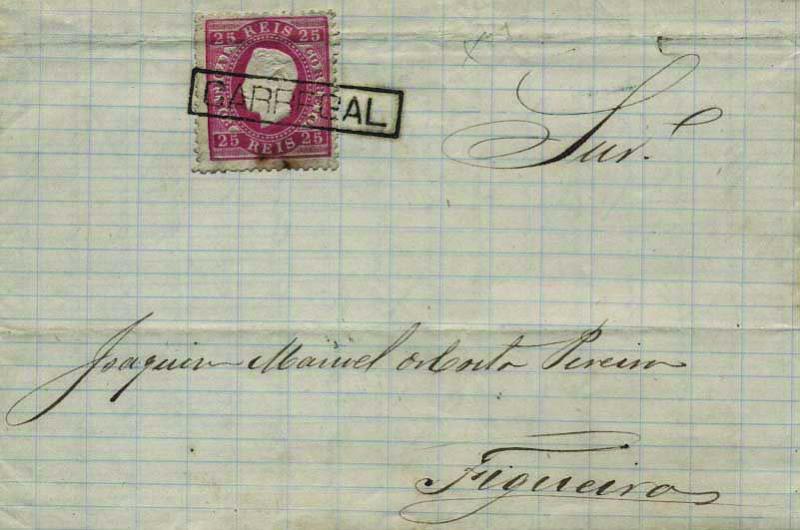 25 REIS 25
CARREGAL
25 REIS 25
Snr.
Joaquim Manuel da Costa Pereira
Figueira